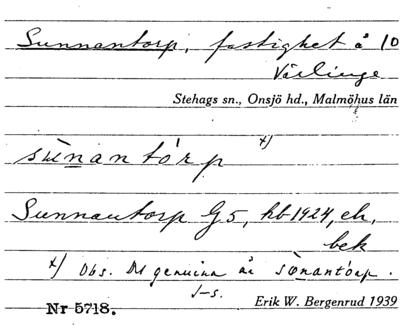 Sunnantorp, fastighet å 10
Värlinge
Stehags sn., Onsjö hd., Malmöhus län
x)
sùnantórp
Sunnantorp G5, hb 1924, ek,
bek
x) Obs. Det genuina är sònantórp.
J-s.
Nr 5718. Erik W. Bergenrud 1939